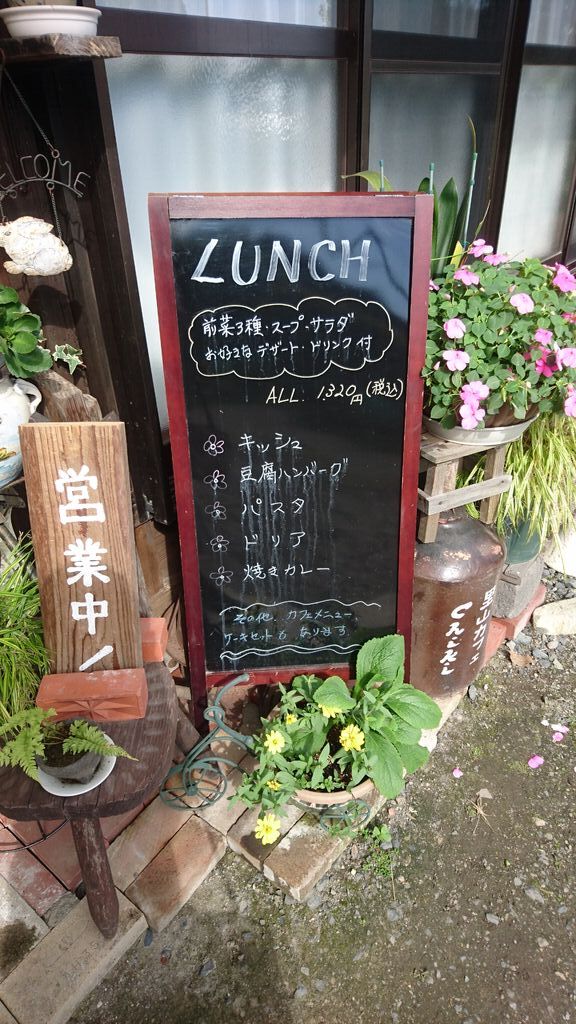 WELCOME
LUNCH
前菜3種・スープ・サラダ
お好きなデザート・ドリンク付
ALL. 1,320円(税込)
キッシュ
豆腐ハンバーグ
パスタ
ドリア
焼きカレー
その他、カフェメニュー
ケーキセットもあります
営業中!
里山カフェ